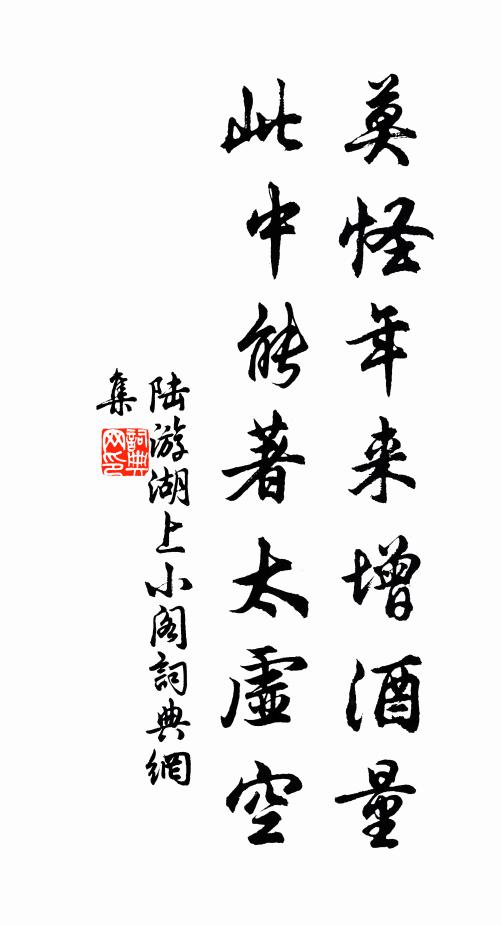 莫怪年来增酒量
此中能著太虚空
陆游湖上小阁詞典網
集
詞典
网印